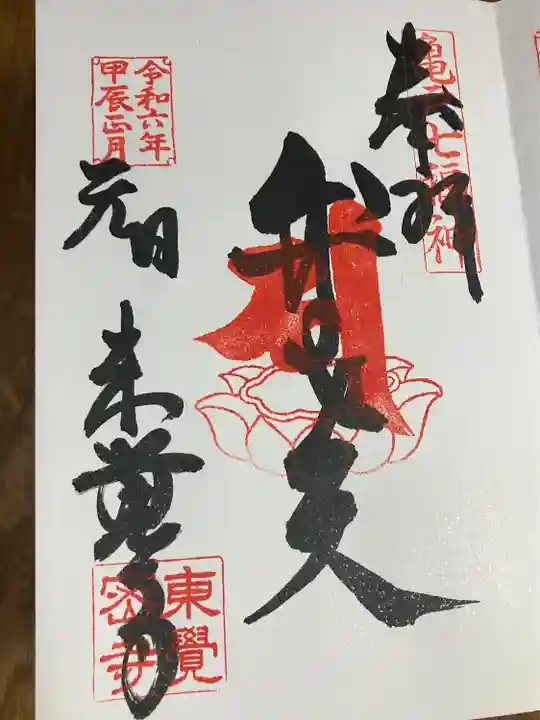 奉拝
亀戸七福神
弁財天
令和六年
甲辰正月
元日
東覺寺
東覺
密寺